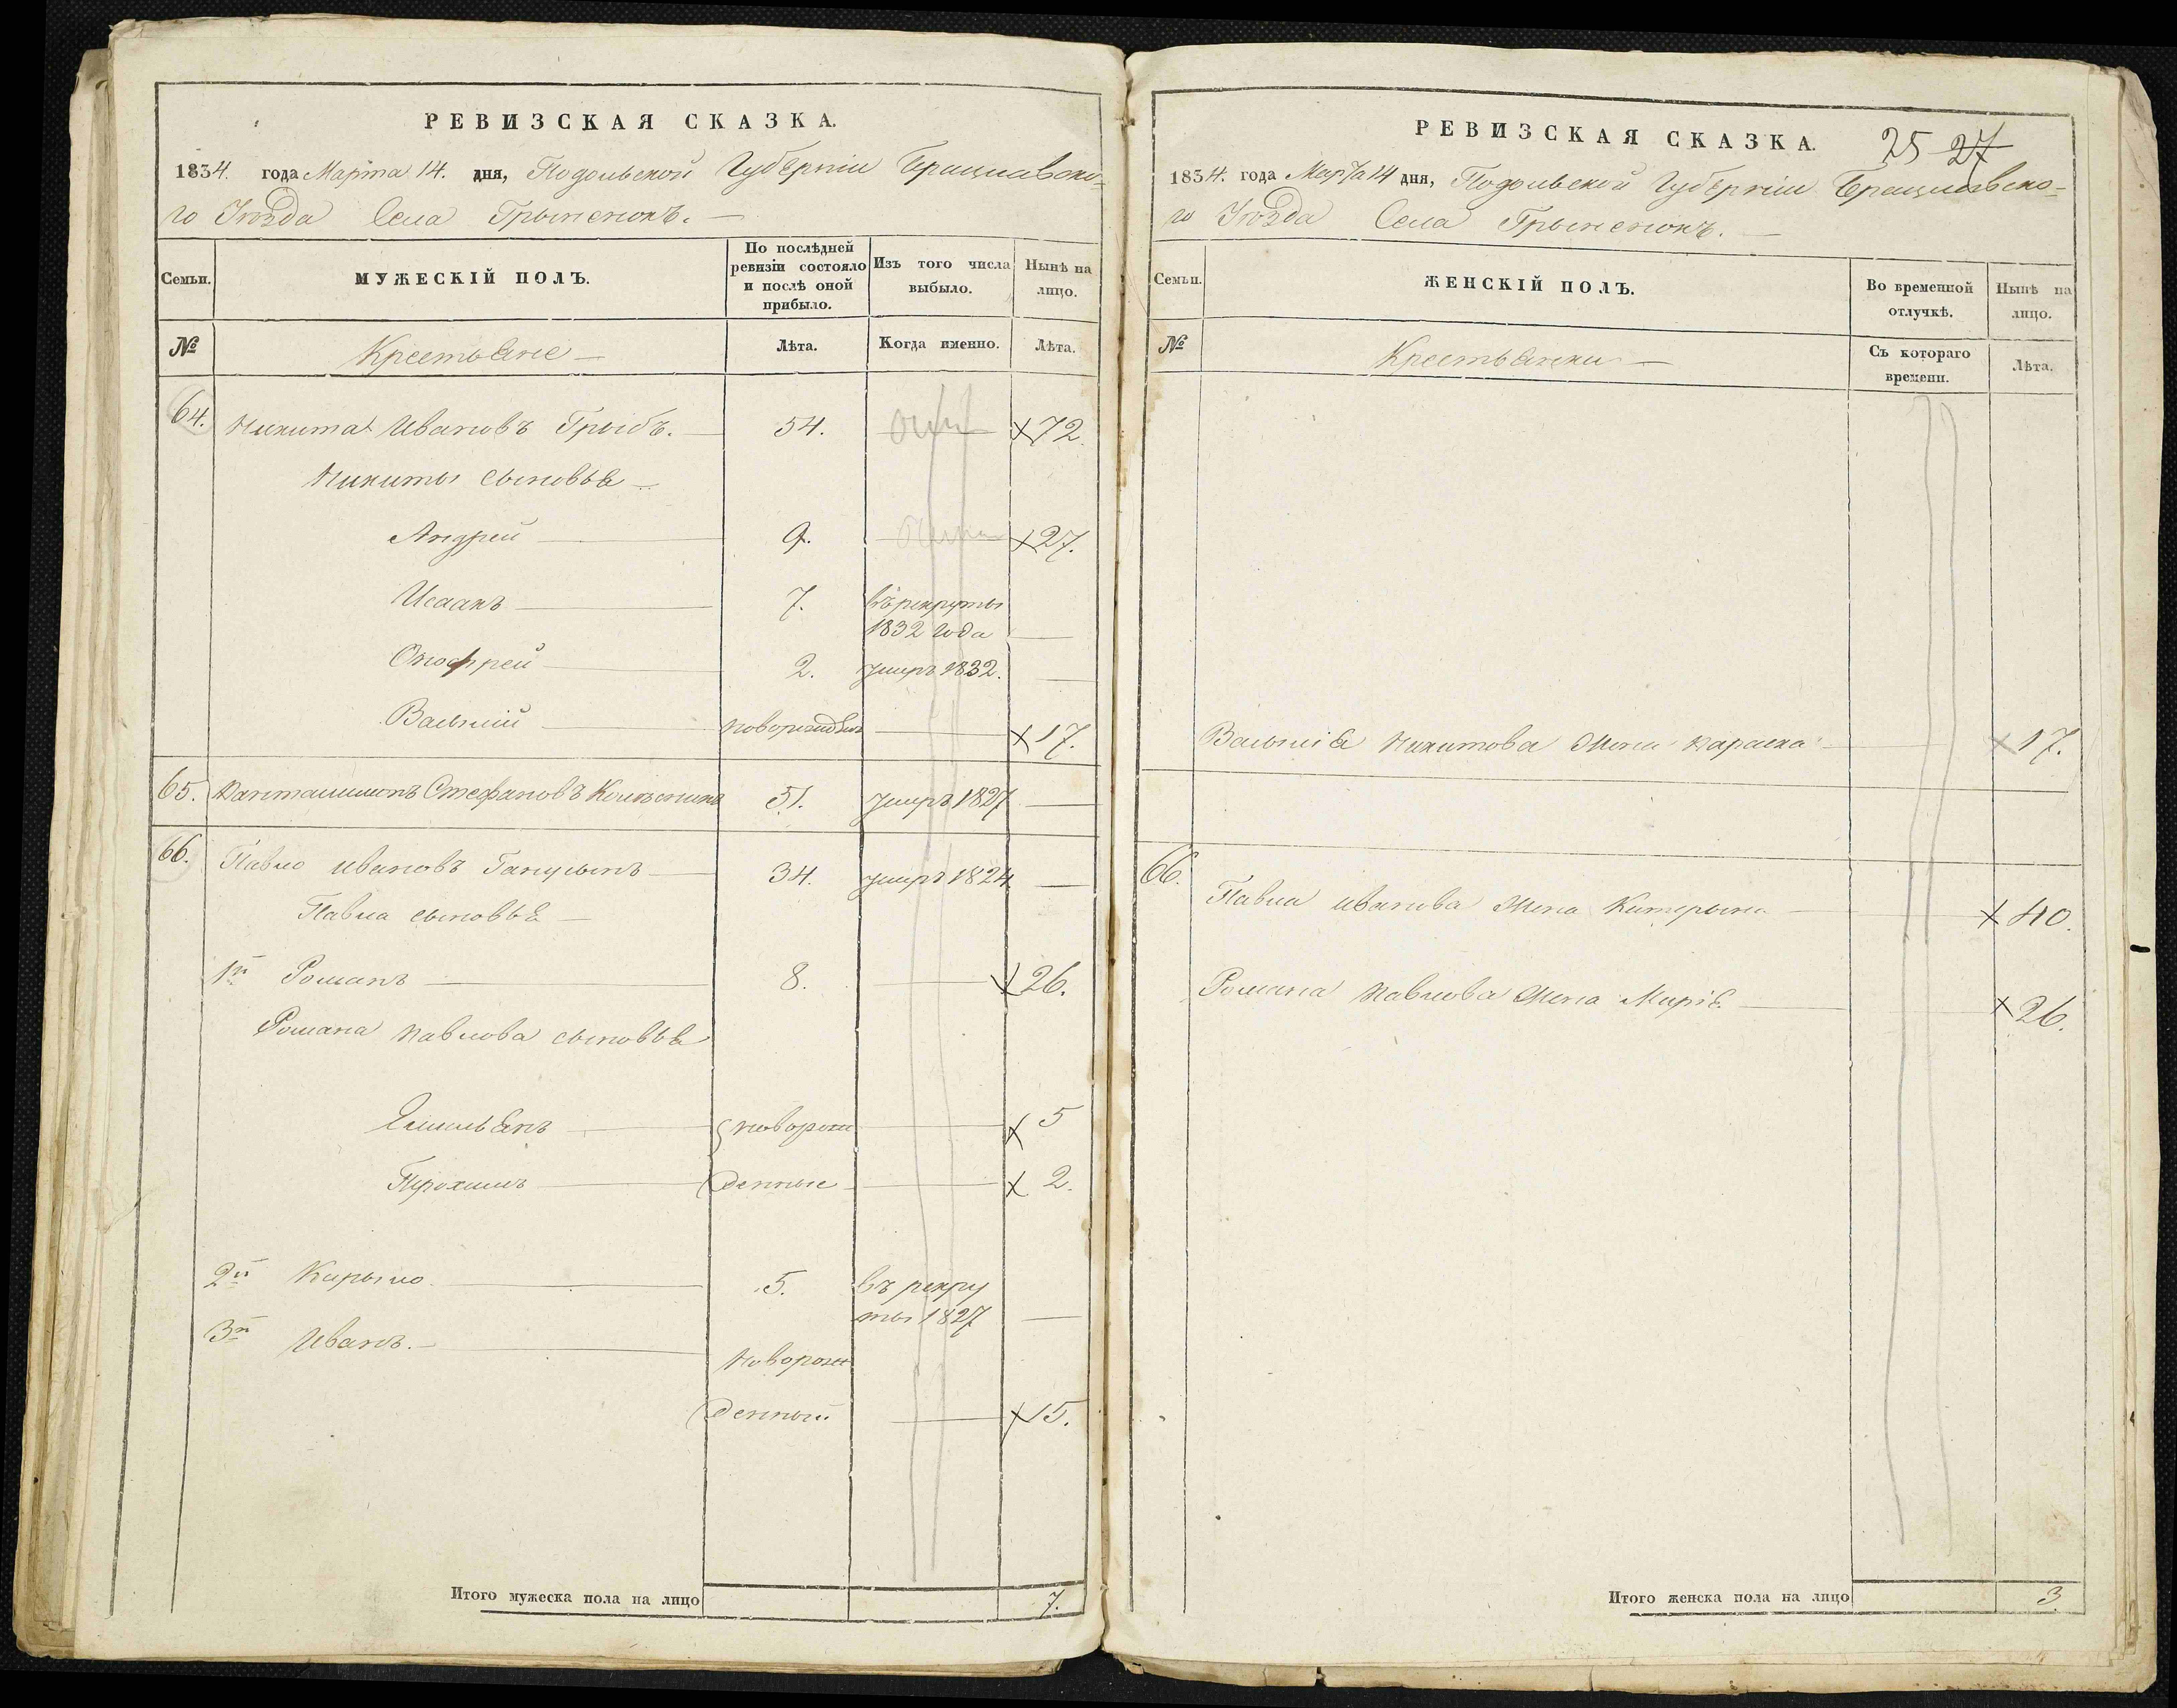 РЕВИЗСКАЯ СКАЗКА.
1834. года Марта 14. дня, Подольской Губерніи Брацлавско-
го Уѣзда Села Грыненокъ.
Семьи.
МУЖЕСКІЙ ПОЛЪ.
По послѣдней ревизіи состояло и послѣ оной прибыло.
Изъ того числа выбыло.
Нынѣ на лицо.
№
Крестьяне
Лѣта.
Когда именно.
Лѣта.
64. Никита Ивановъ Грыбъ. 54. 72.
Никиты сыновья
Андрей 9. 27.
Исаакъ 7. въ рекруты
1832 года
Онофрей 2. умеръ 1832.
Василій 17.
65. Стефановъ 51. умеръ 1827
66. Павло Ивановъ 34. умеръ 1824
Павла сыновья
1й Романъ 8. 26.
Романа Павлова сыновья
Емильянъ новорож 5
Трохимъ денные 2.
2й Кирыло 5. въ рекру
ты 1827
3й Иванъ.
Новорож
денный 15.
Итого мужеска пола на лицо 7.
РЕВИЗСКАЯ СКАЗКА. 25 27
1834. года Марта 14 дня, Подольской Губерніи Брацлавско-
го Уѣзда Села Грыненокъ.
Семьи.
ЖЕНСКІЙ ПОЛЪ.
Во временной отлучкѣ.
Нынѣ на лицо.
№
Крестьянки
Съ котораго времени.
Лѣта.
Василія Никитова Жена Параска 17.
66.
Павла Иванова Жена Катерына 40.
Романа Павлова Жена Марія 26.
Итого женска пола на лицо 3